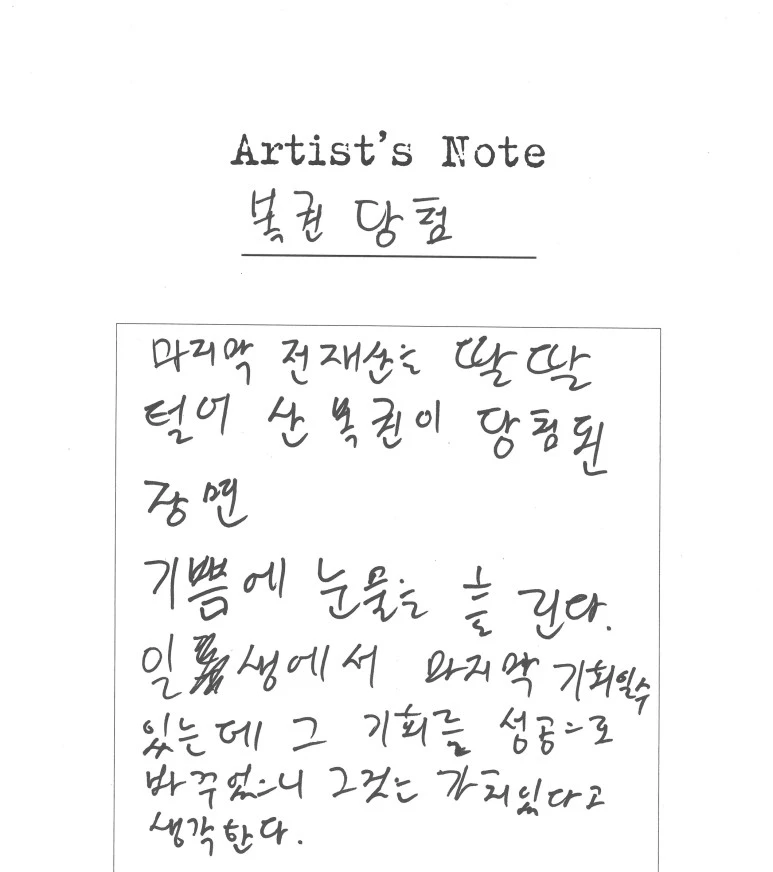 Artist's Note
복권 당첨
마지막 전재산을 탈탈
털어 산 복권이 당첨된
장면
기쁨에 눈물을 흘린다.
일생에서 마지막 기회일수
있는데 그 기회를 성공으로
바꾸었으니 그것은 가치있다고
생각한다.